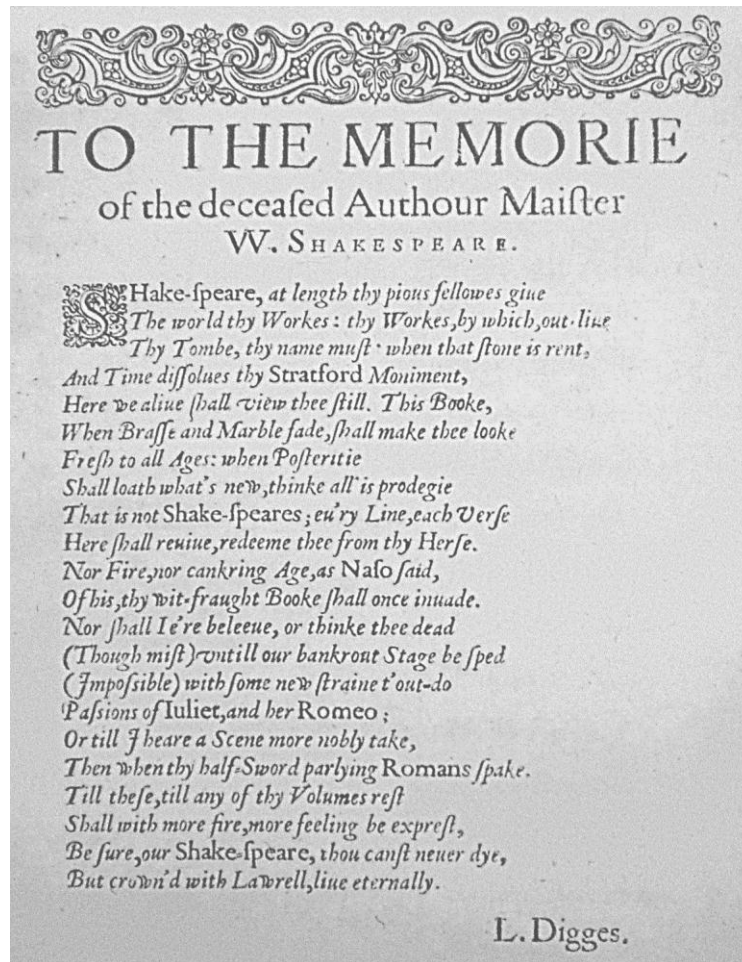 TO THE MEMORIE
of the deceaſed Authour Maiſter
W. SHAKESPEARE.
SHake-ſpeare, at length thy pious fellowes giue
The world thy Workes: thy Workes, by which, out-liue
Thy Tombe, thy name muſt· when that ſtone is rent,
And Time diſſolues thy Stratford Moniment,
Here we aliue ſhall view thee ſtill. This Booke,
When Braſſe and Marble fade, ſhall make thee looke
Freſh to all Ages: when Poſteritie
Shall loath what's new, thinke all is prodegie
That is not Shake-ſpeares; eu'ry Line, each Verſe
Here ſhall reuiue, redeeme thee from thy Herſe.
Nor Fire, nor cankring Age, as Naſo ſaid,
Of his, thy wit-fraught Booke ſhall once inuade.
Nor ſhall I e're beleeue, or thinke thee dead
(Though miſt) vntill our bankrout Stage be ſped
(Impoſsible) with ſome new ſtraine t'out-do
Paſsions of Iuliet, and her Romeo;
Or till I heare a Scene more nobly take,
Then when thy half-Sword parlying Romans ſpake.
Till theſe, till any of thy Volumes reſt
Shall with more fire, more feeling be expreſt,
Be ſure, our Shake-ſpeare, thou canſt neuer dye,
But crown'd with Lawrell, liue eternally.
L. Digges.